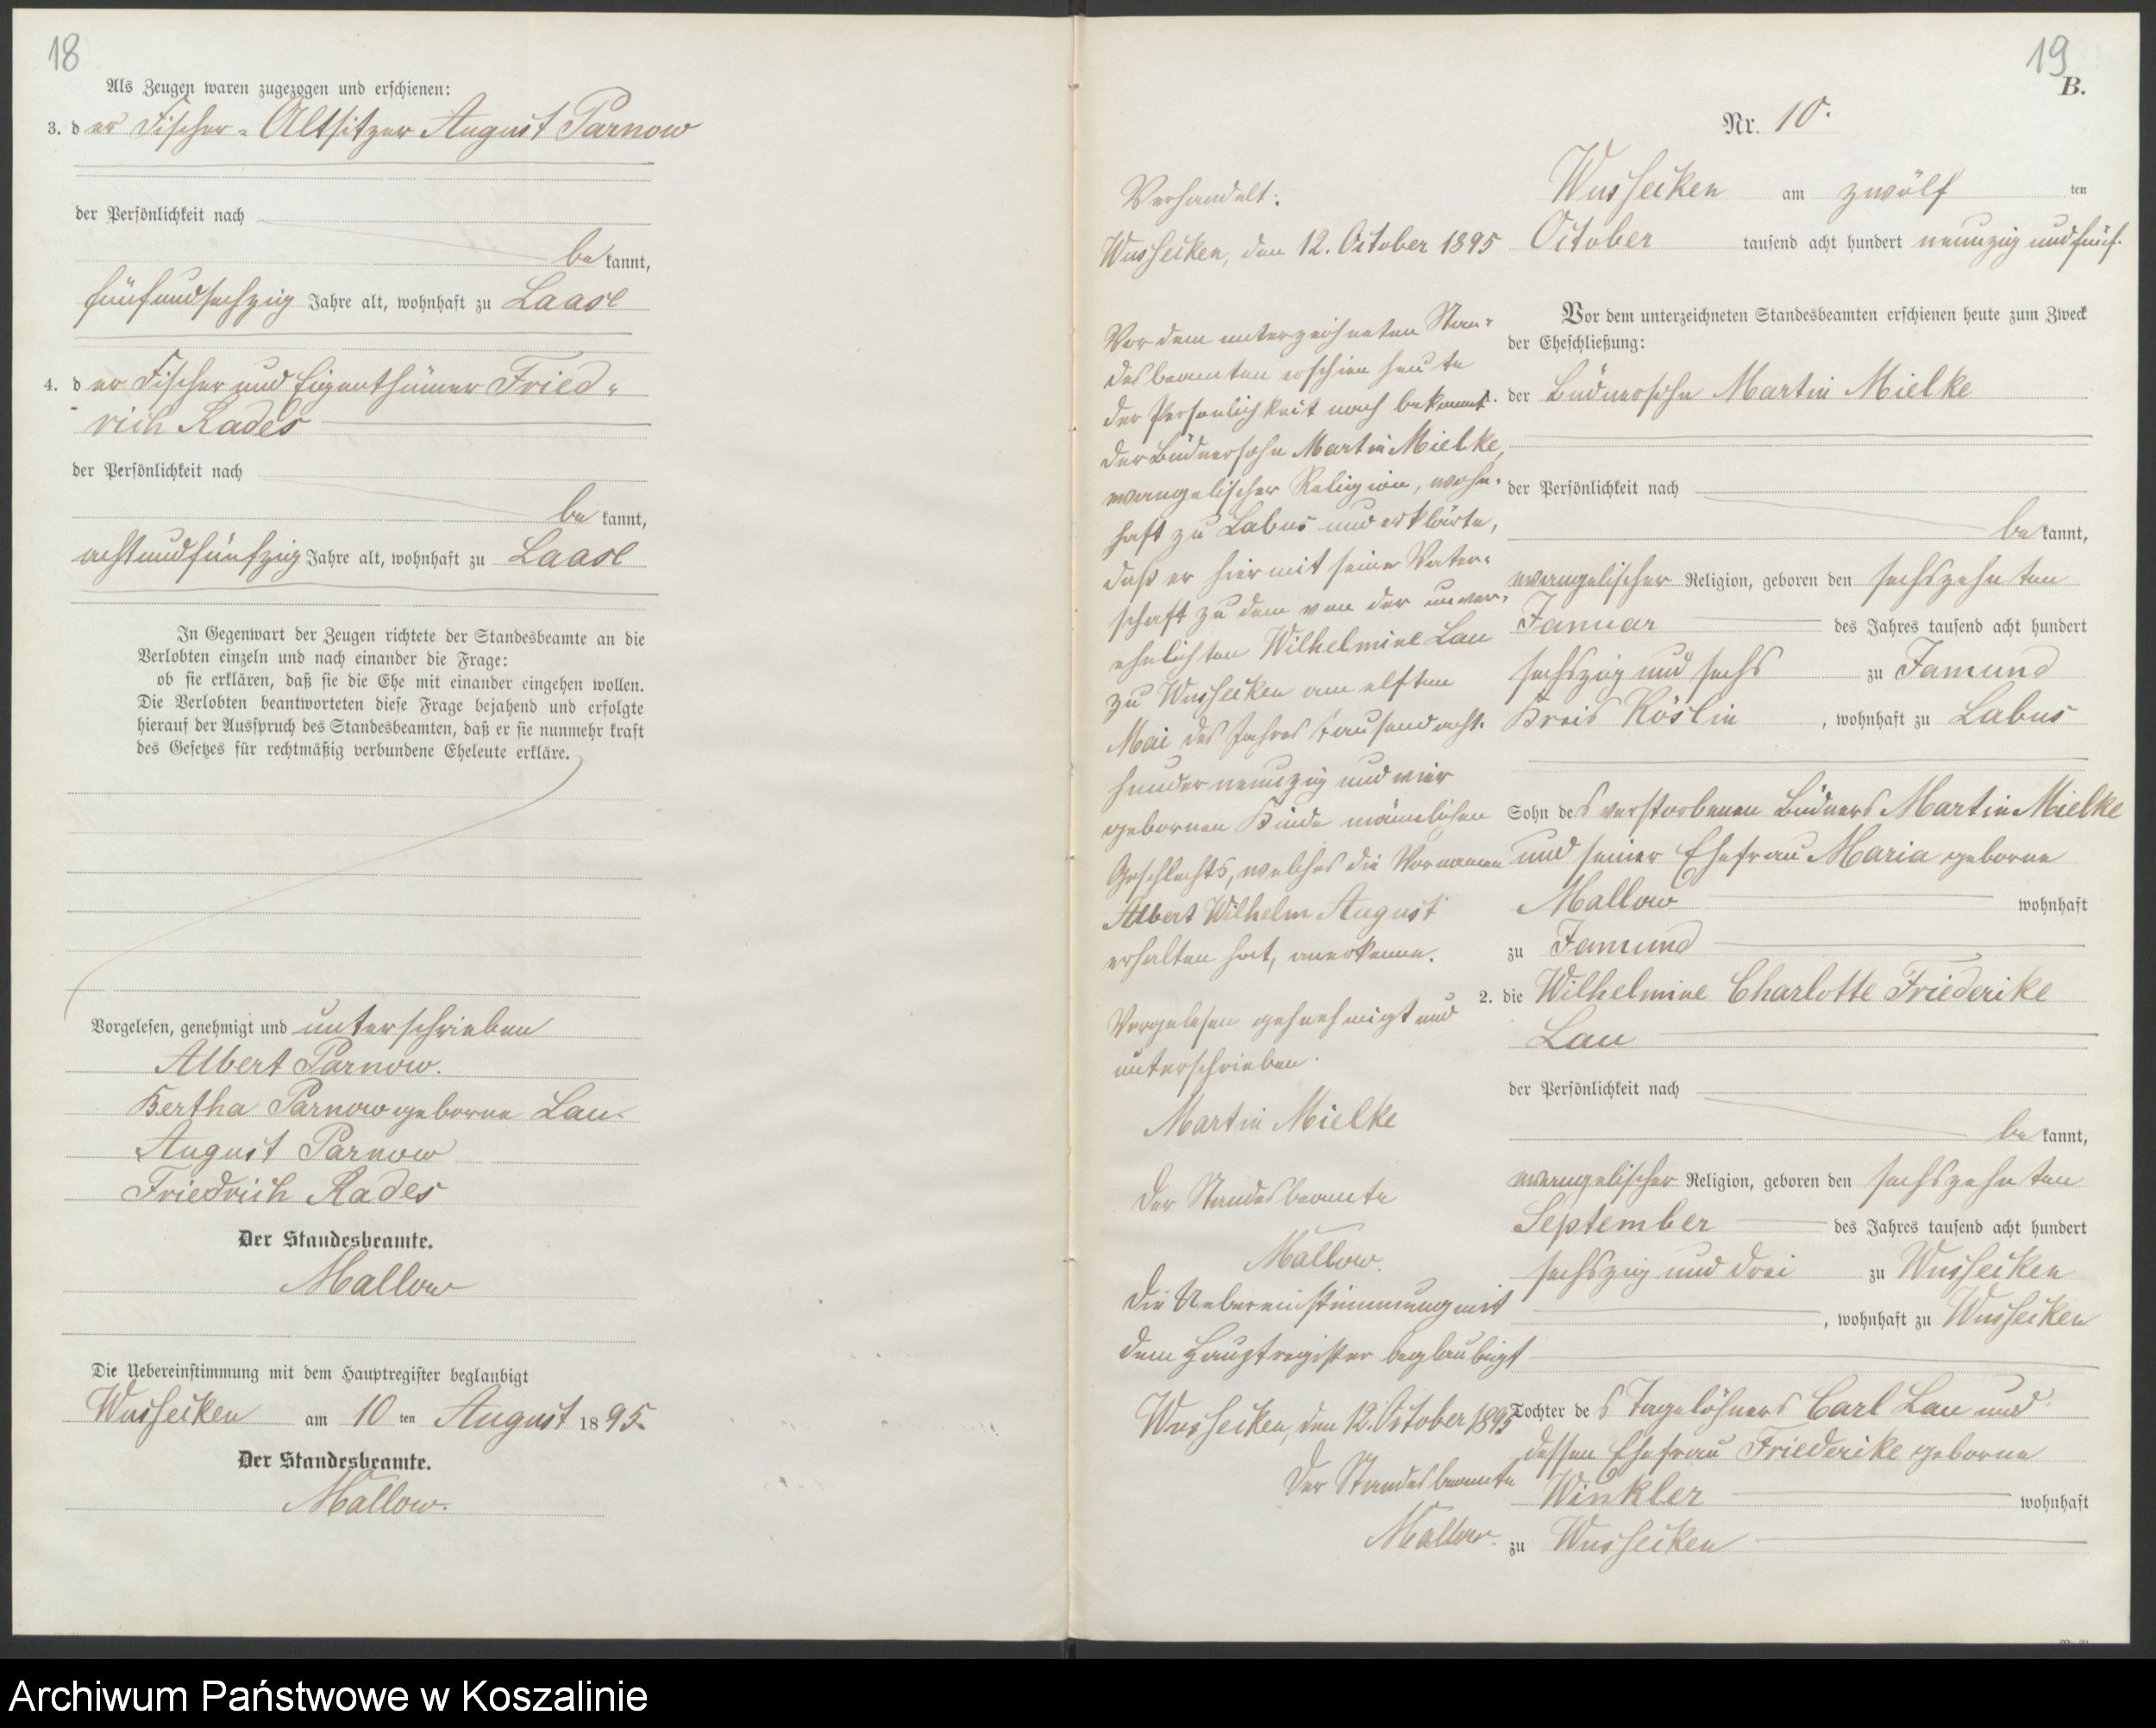 18
Als Zeugen waren zugezogen und erschienen:
3. der Fischer-Altsitzer August Parnow
der Persönlichkeit nach
bekannt,
fünfundsechzig Jahre alt, wohnhaft zu Laase
4. der Fischer und Eigenthümer Fried-
rich Rades
der Persönlichkeit nach
bekannt,
achtundfünfzig Jahre alt, wohnhaft zu Laase
In Gegenwart der Zeugen richtete der Standesbeamte an die
Verlobten einzeln und nach einander die Frage:
ob sie erklären, daß sie die Ehe mit einander eingehen wollen.
Die Verlobten beantworteten diese Frage bejahend und erfolgte
hierauf der Ausspruch des Standesbeamten, daß er sie nunmehr kraft
des Gesetzes für rechtmäßig verbundene Eheleute erkläre.
Vorgelesen, genehmigt und unterschrieben
Albert Parnow.
Bertha Parnow geborne Lau.
August Parnow
Friedrich Rades
Der Standesbeamte.
Mallow
Die Uebereinstimmung mit dem Hauptregister beglaubigt
Wusseken am 10 ten August 1895.
Der Standesbeamte.
Mallow.
19
B.
Nr. 10.
Verhandelt:
Wusseken, den 12. October 1895
Vor dem unterzeichneten Stan-
desbeamten erschien heute
der Persönlichkeit nach bekannt
der Büdnersohn Martin Mielke,
evangelischer Religion, wohn-
haft zu Labus und erklärte,
daß er hiermit seine Vater-
schaft zu dem von der unver-
ehelichten Wilhelmine Lau
zu Wusseken am elften
Mai des Jahres tausend acht-
hunder neunzig und vier
gebornen Kinde männlichen
Geschlechts, welches die Vornamen
Albert Wilhelm August
erhalten hat, anerkenne.
Vorgelesen genehmigt und
unterschrieben.
Martin Mielke
Der Standesbeamte
Mallow.
Die Uebereinstimmung mit
dem Hauptregister beglaubigt
Wusseken, den 12. October 1895
Der Standesbeamte
Mallow.
Wusseken am zwölf ten
October tausend acht hundert neunzig und fünf.
Vor dem unterzeichneten Standesbeamten erschienen heute zum Zweck
der Eheschließung:
1. der Büdnersohn Martin Mielke
der Persönlichkeit nach
bekannt,
evangelischer Religion, geboren den sechszehnten
Januar des Jahres tausend acht hundert
sechszig und sechs zu Jamund
Kreis Köslin, wohnhaft zu Labus
Sohn des verstorbenen Büdners Martin Mielke
und seiner Ehefrau Maria geborne
Mallow wohnhaft
zu Jamund
2. die Wilhelmine Charlotte Friederike
Lau
der Persönlichkeit nach
bekannt,
evangelischer Religion, geboren den sechszehnten
September des Jahres tausend acht hundert
sechszig und drei zu Wusseken
, wohnhaft zu Wusseken
Tochter des Tagelöhners Carl Lau und
dessen Ehefrau Friederike geborne
Winkler wohnhaft
zu Wusseken
Archiwum Państwowe w Koszalinie